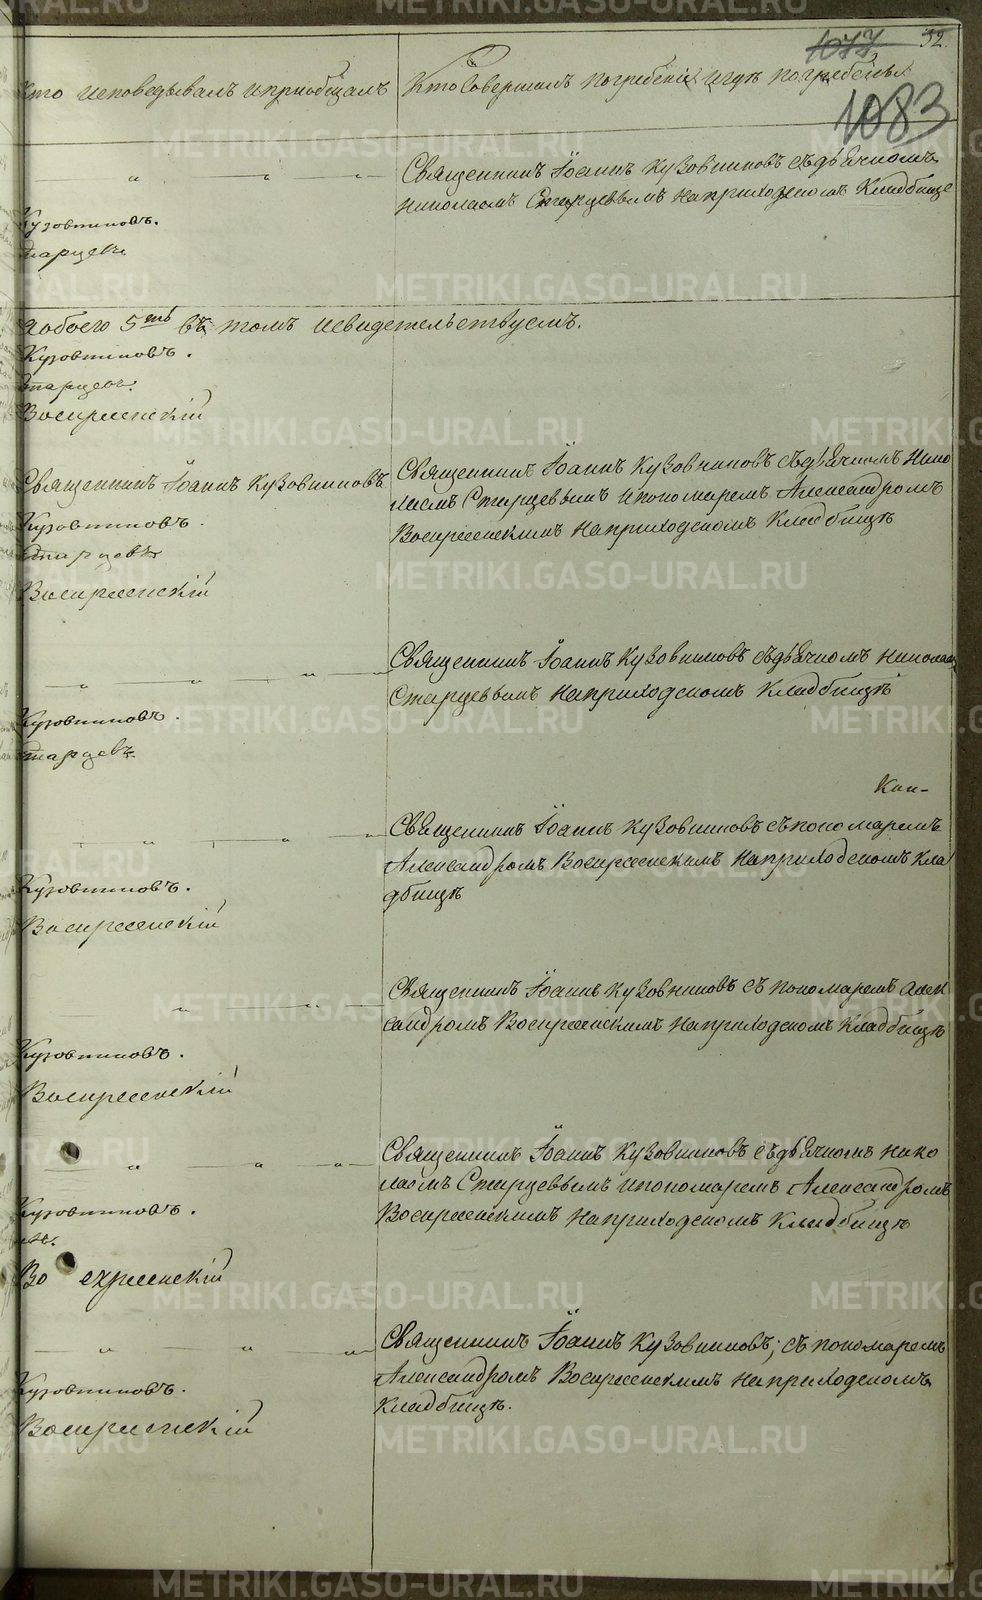 1077 32.
1083
Кто исповедывалъ и приобщалъ
Кто совершалъ погребеніе и гдѣ погребены
Священникъ Іоаннъ Кузовниковъ съ дьячкомъ
Николаемъ Старцевымъ на приходскомъ кладбище
Кузовниковъ.
Старцевъ
обоего 5ть въ томъ и свидетельствуемъ.
Кузовниковъ.
Старцевъ.
Воскресенскій
Священникъ Іоаннъ Кузовниковъ
Священникъ Іоаннъ Кузовниковъ съ дьячкомъ Нико
лаемъ Старцевымъ и пономаремъ Александромъ
Воскресенскимъ на приходскомъ кладбищѣ
Кузовниковъ.
Старцевъ
Воскресенскій
Священникъ Іоаннъ Кузовниковъ съ дьячкомъ Николаем
Старцевымъ на приходскомъ кладбищѣ
Кузовниковъ.
Старцевъ
Священникъ Іоаннъ Кузовниковъ съ пономаремъ
Александромъ Воскресенскимъ на приходскомъ кла
дбищѣ
Кузовниковъ.
Воскресенскій
Священникъ Іоаннъ Кузовниковъ съ пономаремъ Алек
сандромъ Воскресенскимъ на приходскомъ кладбищѣ
Кузовниковъ.
Воскресенскій
Священникъ Іоаннъ Кузовниковъ съ дьячкомъ Нико
лаемъ Старцевымъ и пономаремъ Александромъ
Воскресенскимъ на приходскомъ кладбищѣ
Кузовниковъ.
Воскресенскій
Священникъ Іоаннъ Кузовниковъ; съ пономаремъ
Александромъ Воскресенскимъ на приходскомъ
кладбищѣ.
Кузовниковъ.
Воскресенскій
METRIKI.GASO-URAL.RU